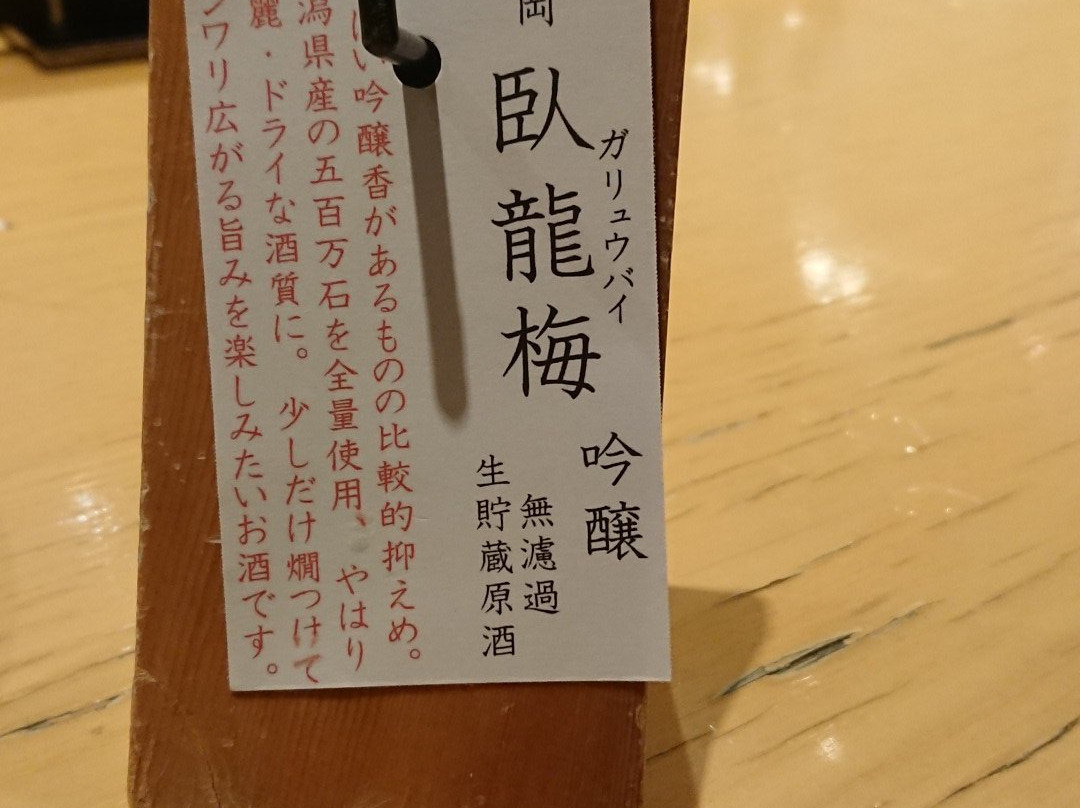 岡
臥龍梅
ガリュウバイ
吟醸
無濾過
生貯蔵原酒
い吟醸香があるものの比較的抑えめ。
潟県産の五百万石を全量使用、やはり
麗・ドライな酒質に。少しだけ燗つけて
ンワリ広がる旨みを楽しみたいお酒です。